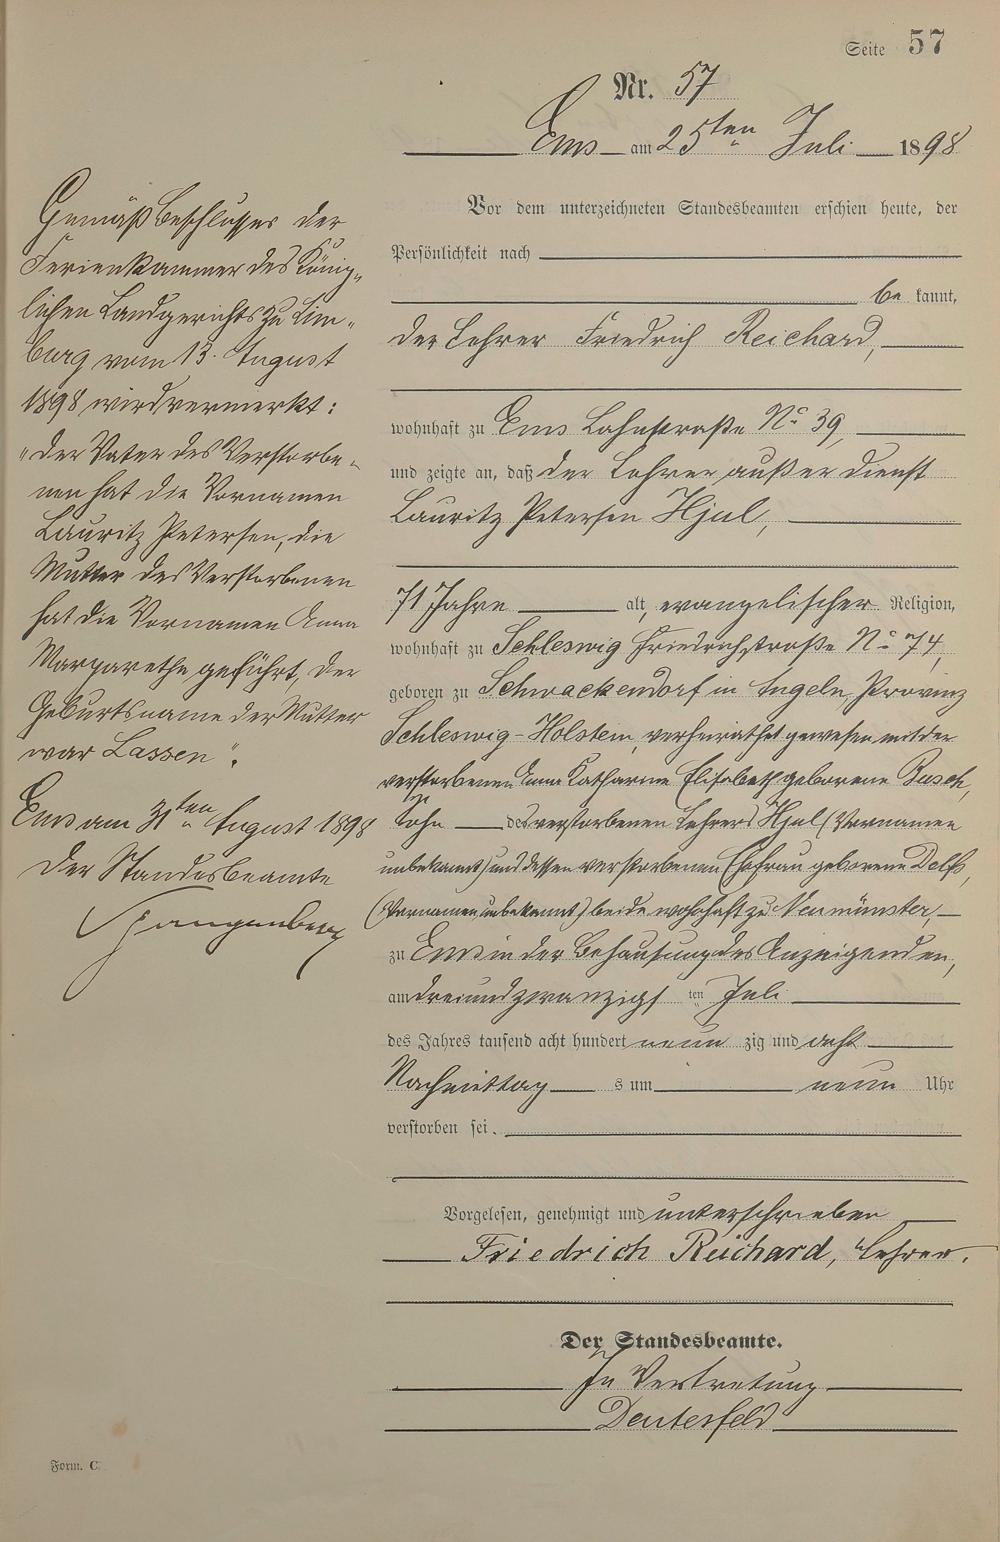 Seite 57
Nr. 57
Ems am 25ten Juli 1898
Vor dem unterzeichneten Standesbeamten erschien heute, der
Persönlichkeit nach
be kannt,
der Lehrer Friedrich Reichard,
wohnhaft zu Ems Lahnstraße No 39,
und zeigte an, daß der Lehrer außer Dienst
Lauritz Petersen Hjul,
71 Jahre alt, evangelischer Religion,
wohnhaft zu Schleswig Friedrichstraße No 74,
geboren zu Schwackendorf in Angeln, Provinz
Schleswig-Holstein, verheirathet gewesen mit der
verstorbenen Anna Katharine Elisabeth geborene Busch,
Sohn des verstorbenen Lehrers Hjul (Vornamen
unbekannt) und dessen verstorbenen Ehefrau geborene Delfs,
(Vornamen unbekannt) beide wohnhaft zu Neumünster,
zu Ems in der Behausung des Anzeigenden,
am dreiundzwanzigs ten Juli
des Jahres tausend acht hundert neun zig und acht
Nachmittag s um neun Uhr
verstorben sei.
Vorgelesen, genehmigt und unterschrieben
Friedrich Reichard, Lehrer.
Der Standesbeamte.
In Vertretung
Deutesfeld
Gemäß Beschlusses der
Ferienkammer des König-
lichen Landgerichts zu Lim-
burg vom 13. August
1898 wird vermerkt:
"Der Vater des Verstorbe-
nen hat die Vornamen
Lauritz Petersen, die
Mutter des Verstorbenen
hat die Vornamen Anna
Margarethe geführt, der
Geburtsname der Mutter
war Lassen".
Ems am 31ten August 1898
Der Standesbeamte
Spangenberg
Form. C.